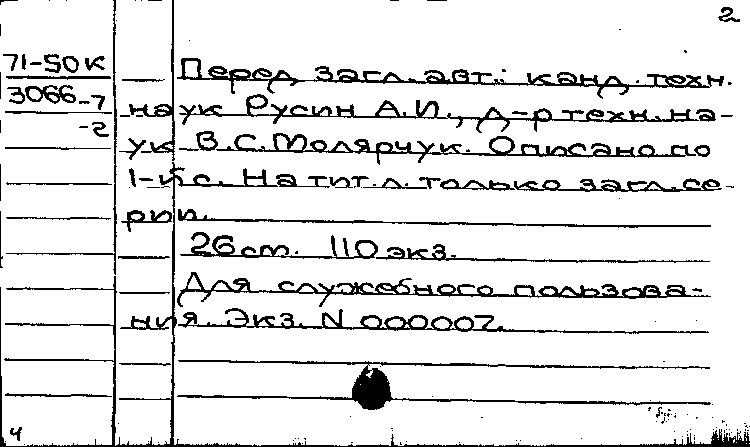 2
71-50К
3066-7
-2
Перед загл. авт.: канд. техн.
наук Русин А.И., д-р техн. на-
ук В.С. Молярчук. Описано по
1-й с. На тит. л. только загл. се-
рии.
26 cm. 110 экз.
Для служебного пользова-
ния. Экз. N 000002.
4